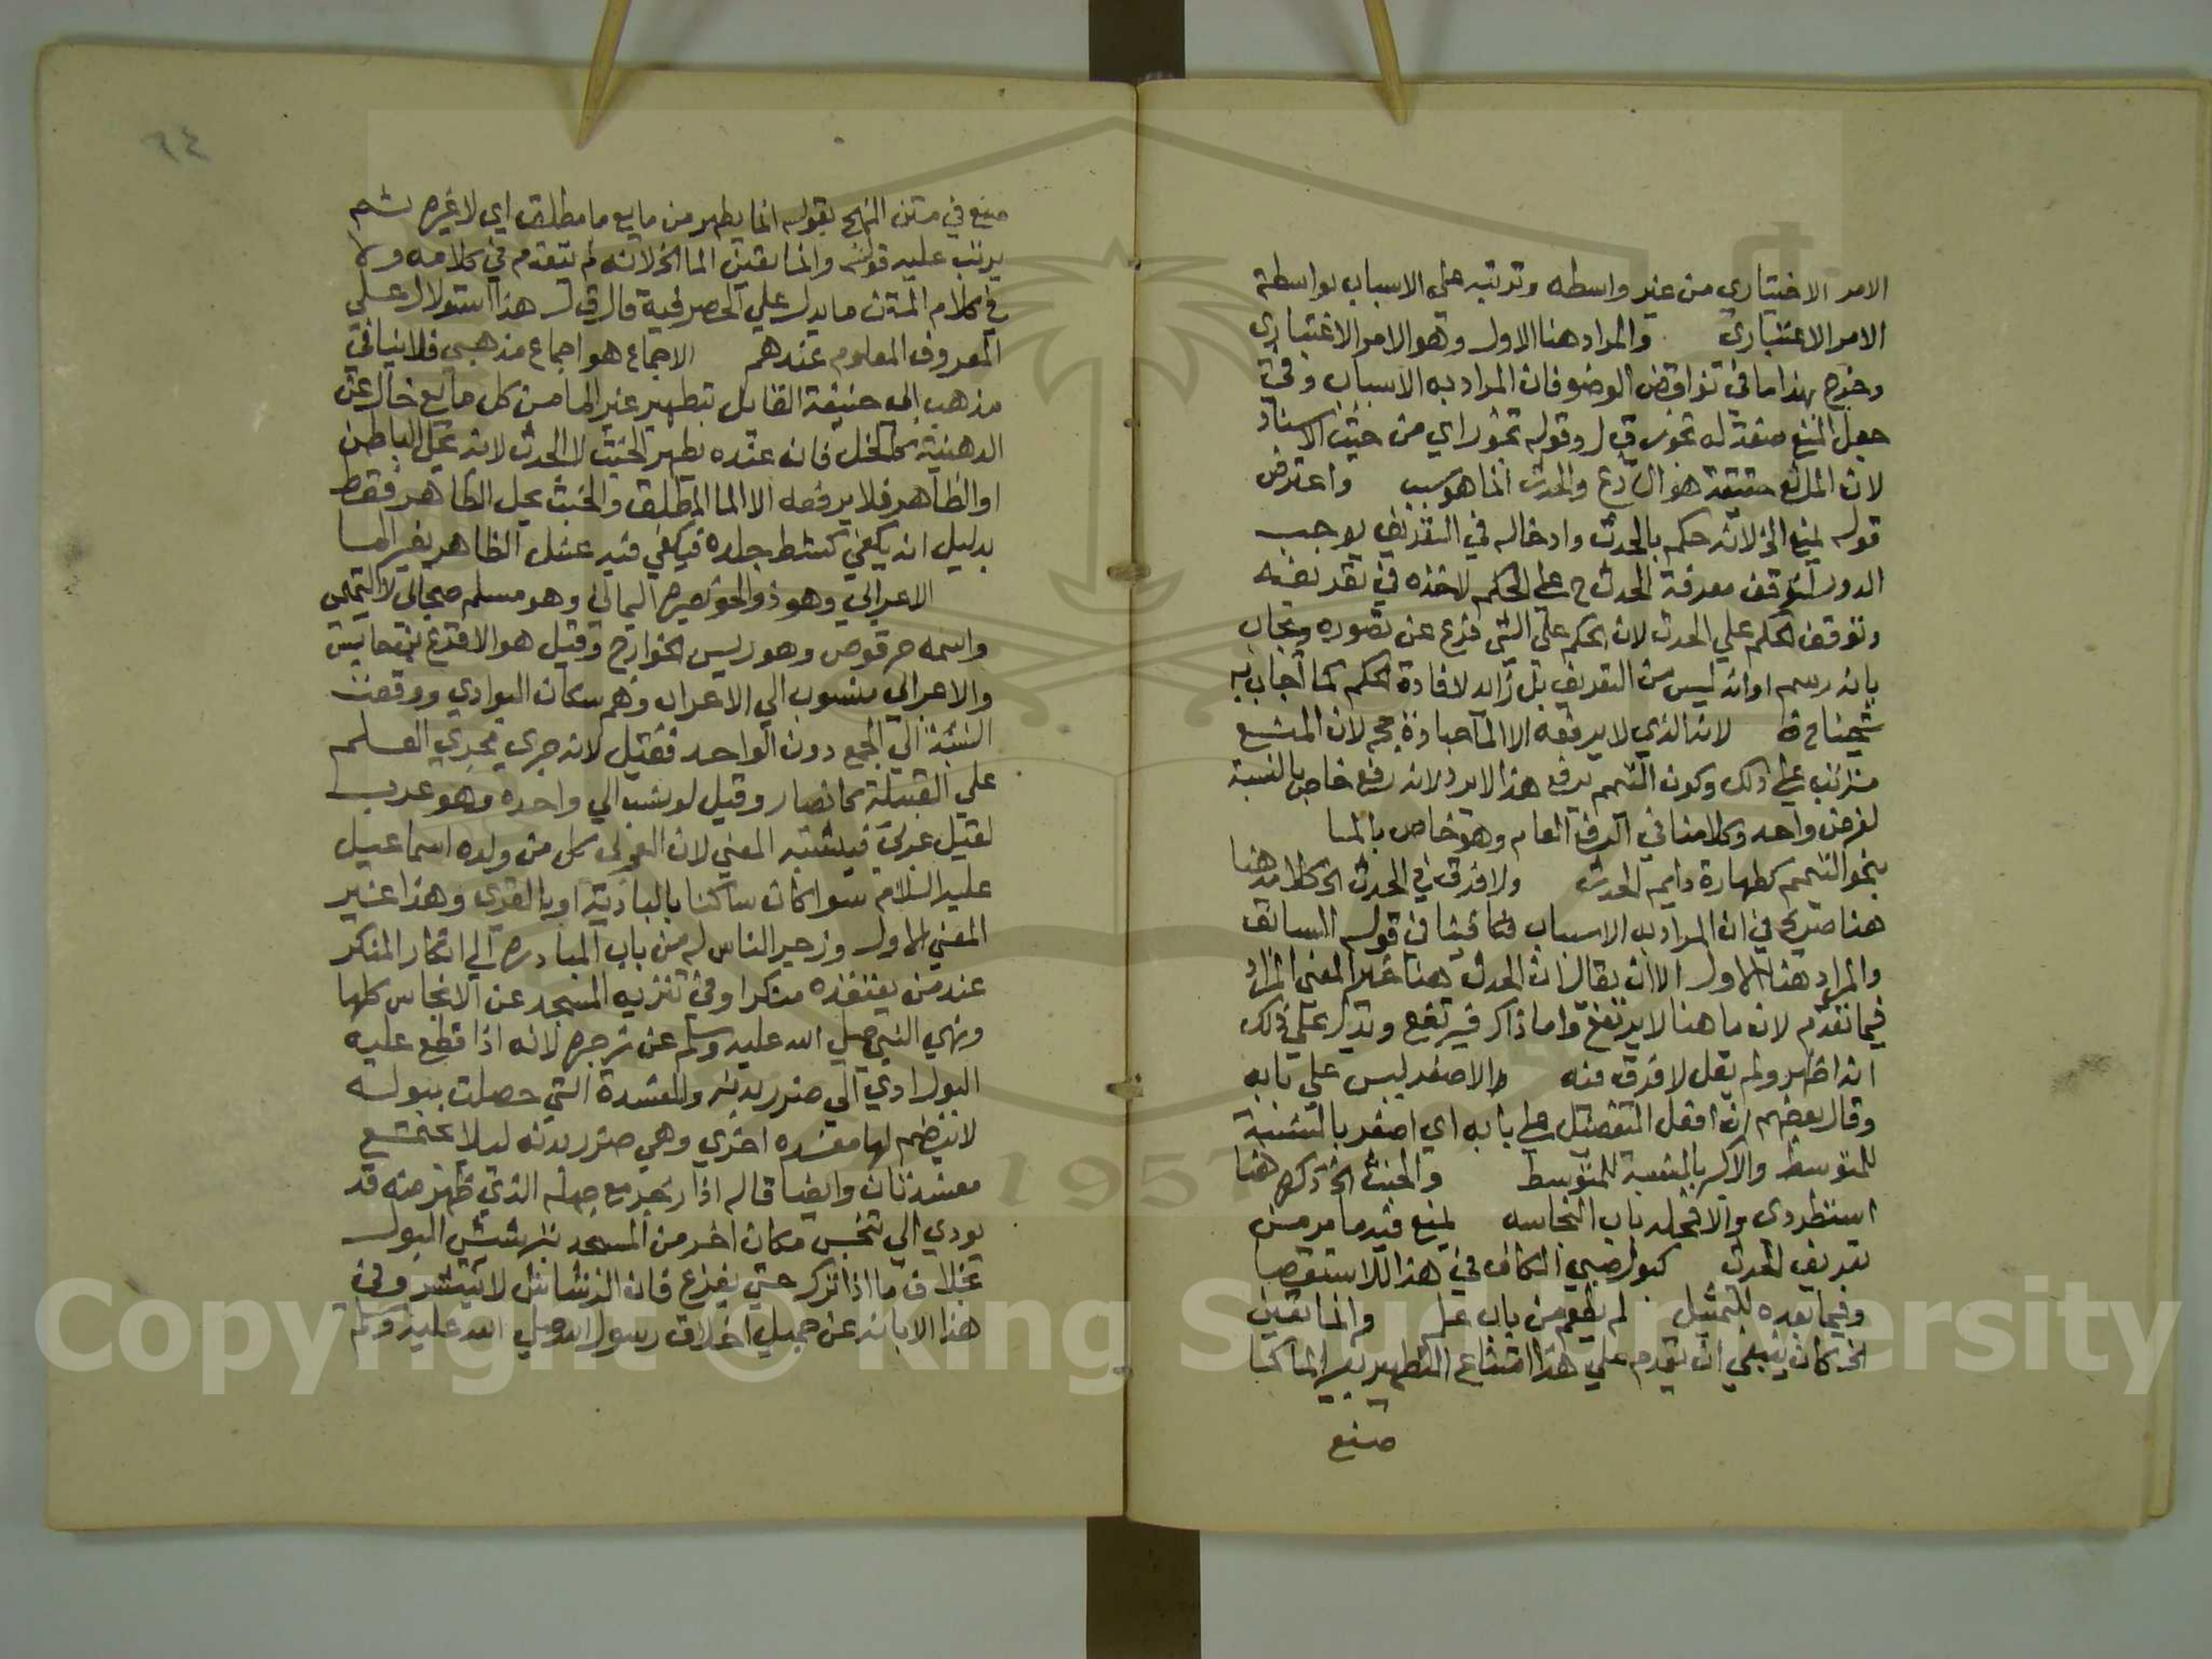 الامر الاختياري من غير واسطه وترتبه علي الاسباب بواسطة
الامر الاعتباري والمراد هنا الاول وهو الامر الاعتباري
وخرج بهذا ما في نواقض الوضو فان المراد به الاسباب وفي
جعل المنع صفة له تجوز ق ل وقوله تجوز اي من حيث الاسناد
لان المانع حقيقة هو الشارع والحدث انما هو سبب واعترض
قوله لمنع الخ لانه حكم بالحدث وادخاله في التعريف يوجب
الدور لتوقف معرفة الحدث ح علي الحكم لاخذه في تعريفه
وتوقف الحكم علي الحدث لان الحكم علي الشي فرع عن تصوره ويجاب
بانه رسم او انه ليس من التعريف بل زايد لافادة الحكم كما اجاب به
شيخنا لانه الذي لا يرفعه الا الما لان المنع
مترتب علي ذلك وكون التيمم يرفع هذا لا يرد لانه رفع خاص بالنسبة
لفرض واحد وكلامنا في الرفع العام وهو خاص بالما
بنحو التيمم كطهارة دايم الحدث ولا فرق في الحدث الخ كلامه هنا
هنا صريح في ان المراد به الاسباب في قوله السابق
والمراد هنا الاول الا ان يقال ان الحدث هنا غير المعني المراد
فيما تقدم لان ما هنا لا يرتفع واما ذاك فيرتفع ويدل علي ذلك
انه اظهر ولم يقل لا فرق فيه والاصغر ليس علي بابه
وقال بعضهم ان افعل التفضيل علي بابه اي اصغر بالنسبة
للمتوسط والاكبر بالنسبة للمتوسط والخبث الخ ذكره هنا
استطرادي والا فمحله باب النجاسه لمنع فيه ما مر من
تعريف الحدث كبول صبي الكاف في هذا للاستقصا
وفيما بعده للتمثيل لم يطعم من باب علم وانما تعين
الخ كان ينبغي ان يقدم علي هذا امتناع التطهير بغير الما كما
صنع
٦٤
صنع في متن المنهج بقوله انما يطهر من مايع ما مطلق اي لا غيره ثم
يرتب عليه قوله وانما تعين الما الخ لانه لم يتقدم في كلامه ولا
في كلام المتن ما يدل علي الحصر فيه قال ق ل هذا استدلال علي
المعروف المعلوم عندهم الاجماع هو اجماع مذهبي فلا ينافي
مذهب ابي حنيفة القايل بتطهير غير الما من كل مايع خال عن
الدهنية كالخل فانه عنده يطهر الخبث لا الحدث لانه يحل الباطن
او الظاهر فلا يرفعه الا الما المطلق والخبث يحل الظاهر فقط
بدليل انه يكفي كشط جلده فيكفي فيه غسل الظاهر بغير الما
الاعرابي وهو ذو الخويصره اليماني وهو مسلم صحابي لا التميمي
واسمه حرقوص وهو رييس الخوارج وقيل هو الاقرع بن حابس
والاعرابي منسوب الي الاعراب وهم سكان البوادي ووقعت
النسبة الي الجمع دون الواحد فقيل لانه جري مجري العلم
علي القبيلة كانصار وقيل لو نسب الي واحده وهو عرب
لقيل عربي فيشتبه المعني لان العربي كل من ولده اسماعيل
عليه السلام سوا كان ساكنا بالبادية او بالقري وهذا غير
المعني الاول وزجر الناس له من باب المبادره الي انكار المنكر
عند من يعتقده منكرا وفي تنزيه المسجد عن الانجاس كلها
ونهي النبي صلي الله عليه وسلم عن زجره لانه اذا قطع عليه
البول ادي الي ضرر بدنه والمفسدة التي حصلت ببوله
لا ينضم لها مفسده اخري وهي ضرر بدنه ليلا يجتمع
مفسدتان وايضا فانه اذا زجر مع جهله الذي ظهر منه قد
يودي الي تنجس مكان اخر من المسجد بترشيش البول
بخلاف ما اذا ترك حتي يفرغ فان الرشاش لا ينتشر وفي
هذا الابانه عن جميل اخلاق رسول الله صلي الله عليه وسلم